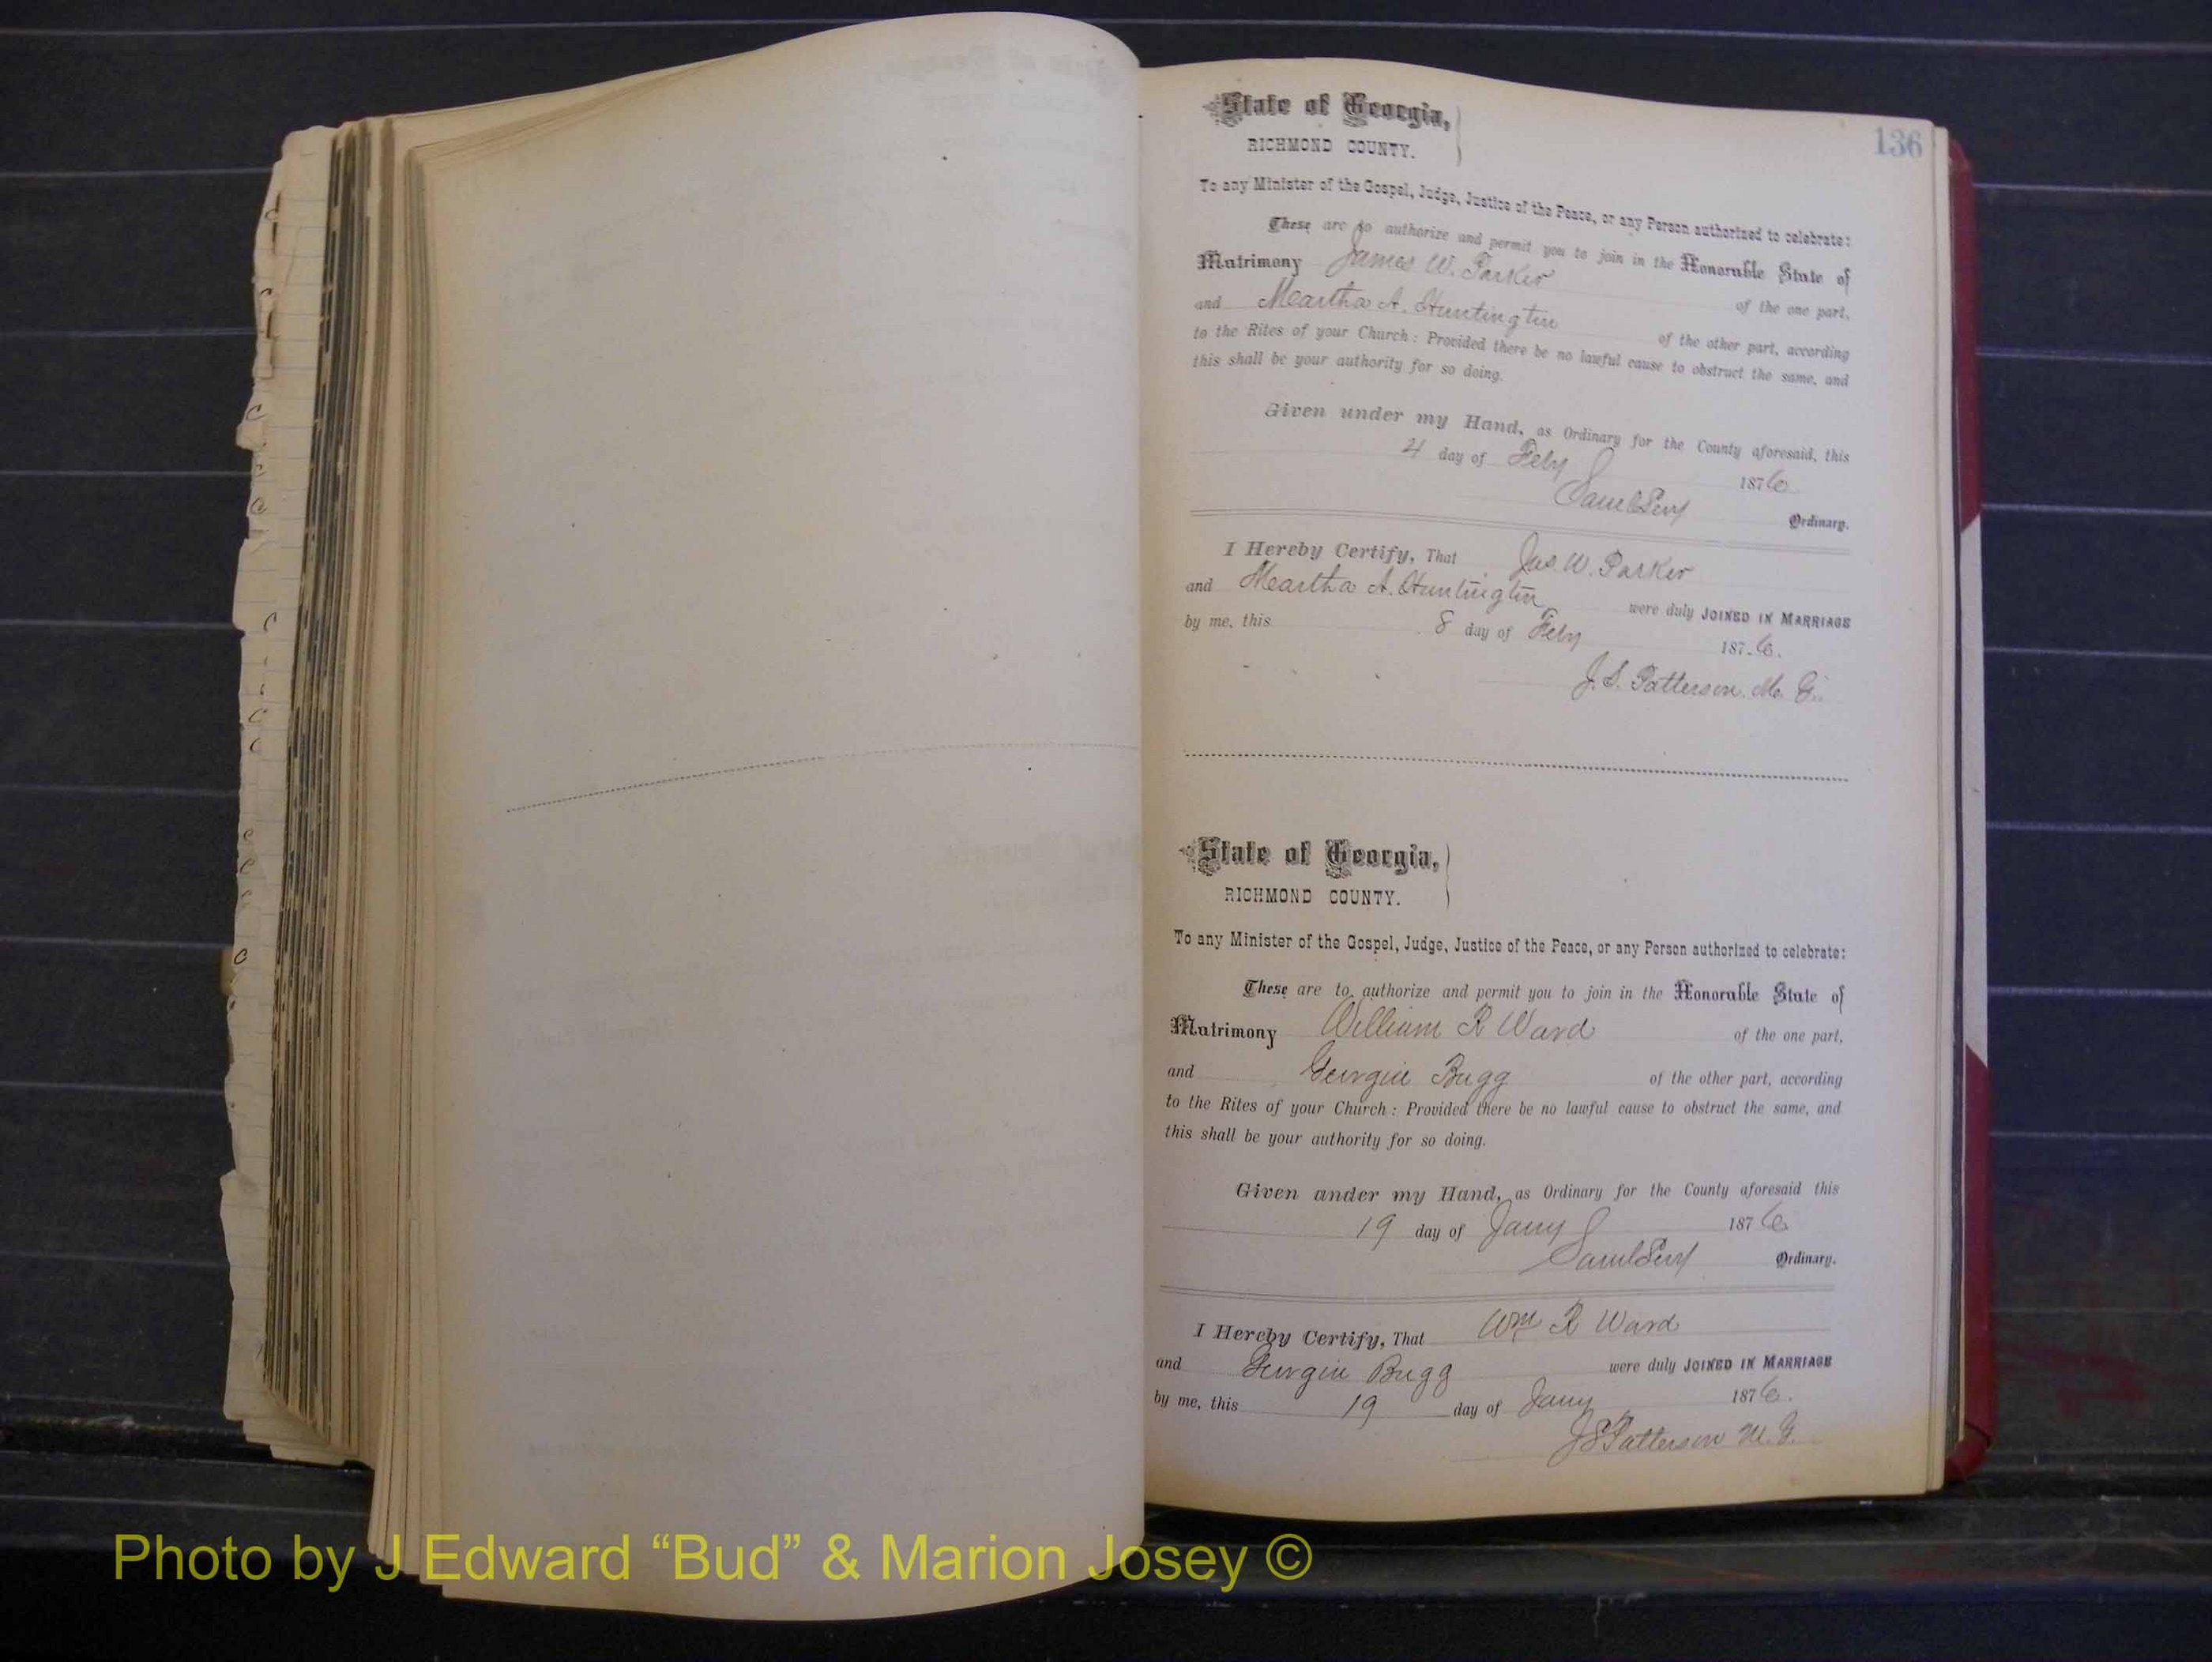 136
State of Georgia,
RICHMOND COUNTY.
To any Minister of the Gospel, Judge, Justice of the Peace, or any Person authorized to celebrate:
These are to authorize and permit you to join in the Honorable State of
Matrimony James W. Parker of the one part,
and Martha A. Huntington of the other part, according
to the Rites of your Church: Provided there be no lawful cause to obstruct the same, and
this shall be your authority for so doing.
Given under my Hand, as Ordinary for the County aforesaid, this
4 day of Feby 1876
Saml Levy Ordinary.
I Hereby Certify, That Jas. W. Parker
and Martha A. Huntington were duly JOINED IN MARRIAGE
by me, this 8 day of Feby 1876.
J. S. Patterson. M. G.
State of Georgia,
RICHMOND COUNTY.
To any Minister of the Gospel, Judge, Justice of the Peace, or any Person authorized to celebrate:
These are to authorize and permit you to join in the Honorable State of
Matrimony William R Ward of the one part,
and Georgia Bugg of the other part, according
to the Rites of your Church: Provided there be no lawful cause to obstruct the same, and
this shall be your authority for so doing.
Given under my Hand, as Ordinary for the County aforesaid this
19 day of Jany 1876
Saml Levy Ordinary.
I Hereby Certify, That Wm R Ward
and Georgia Bugg were duly JOINED IN MARRIAGE
by me, this 19 day of Jany 1876.
J S Patterson M. G.
Photo by J Edward “Bud” & Marion Josey ©